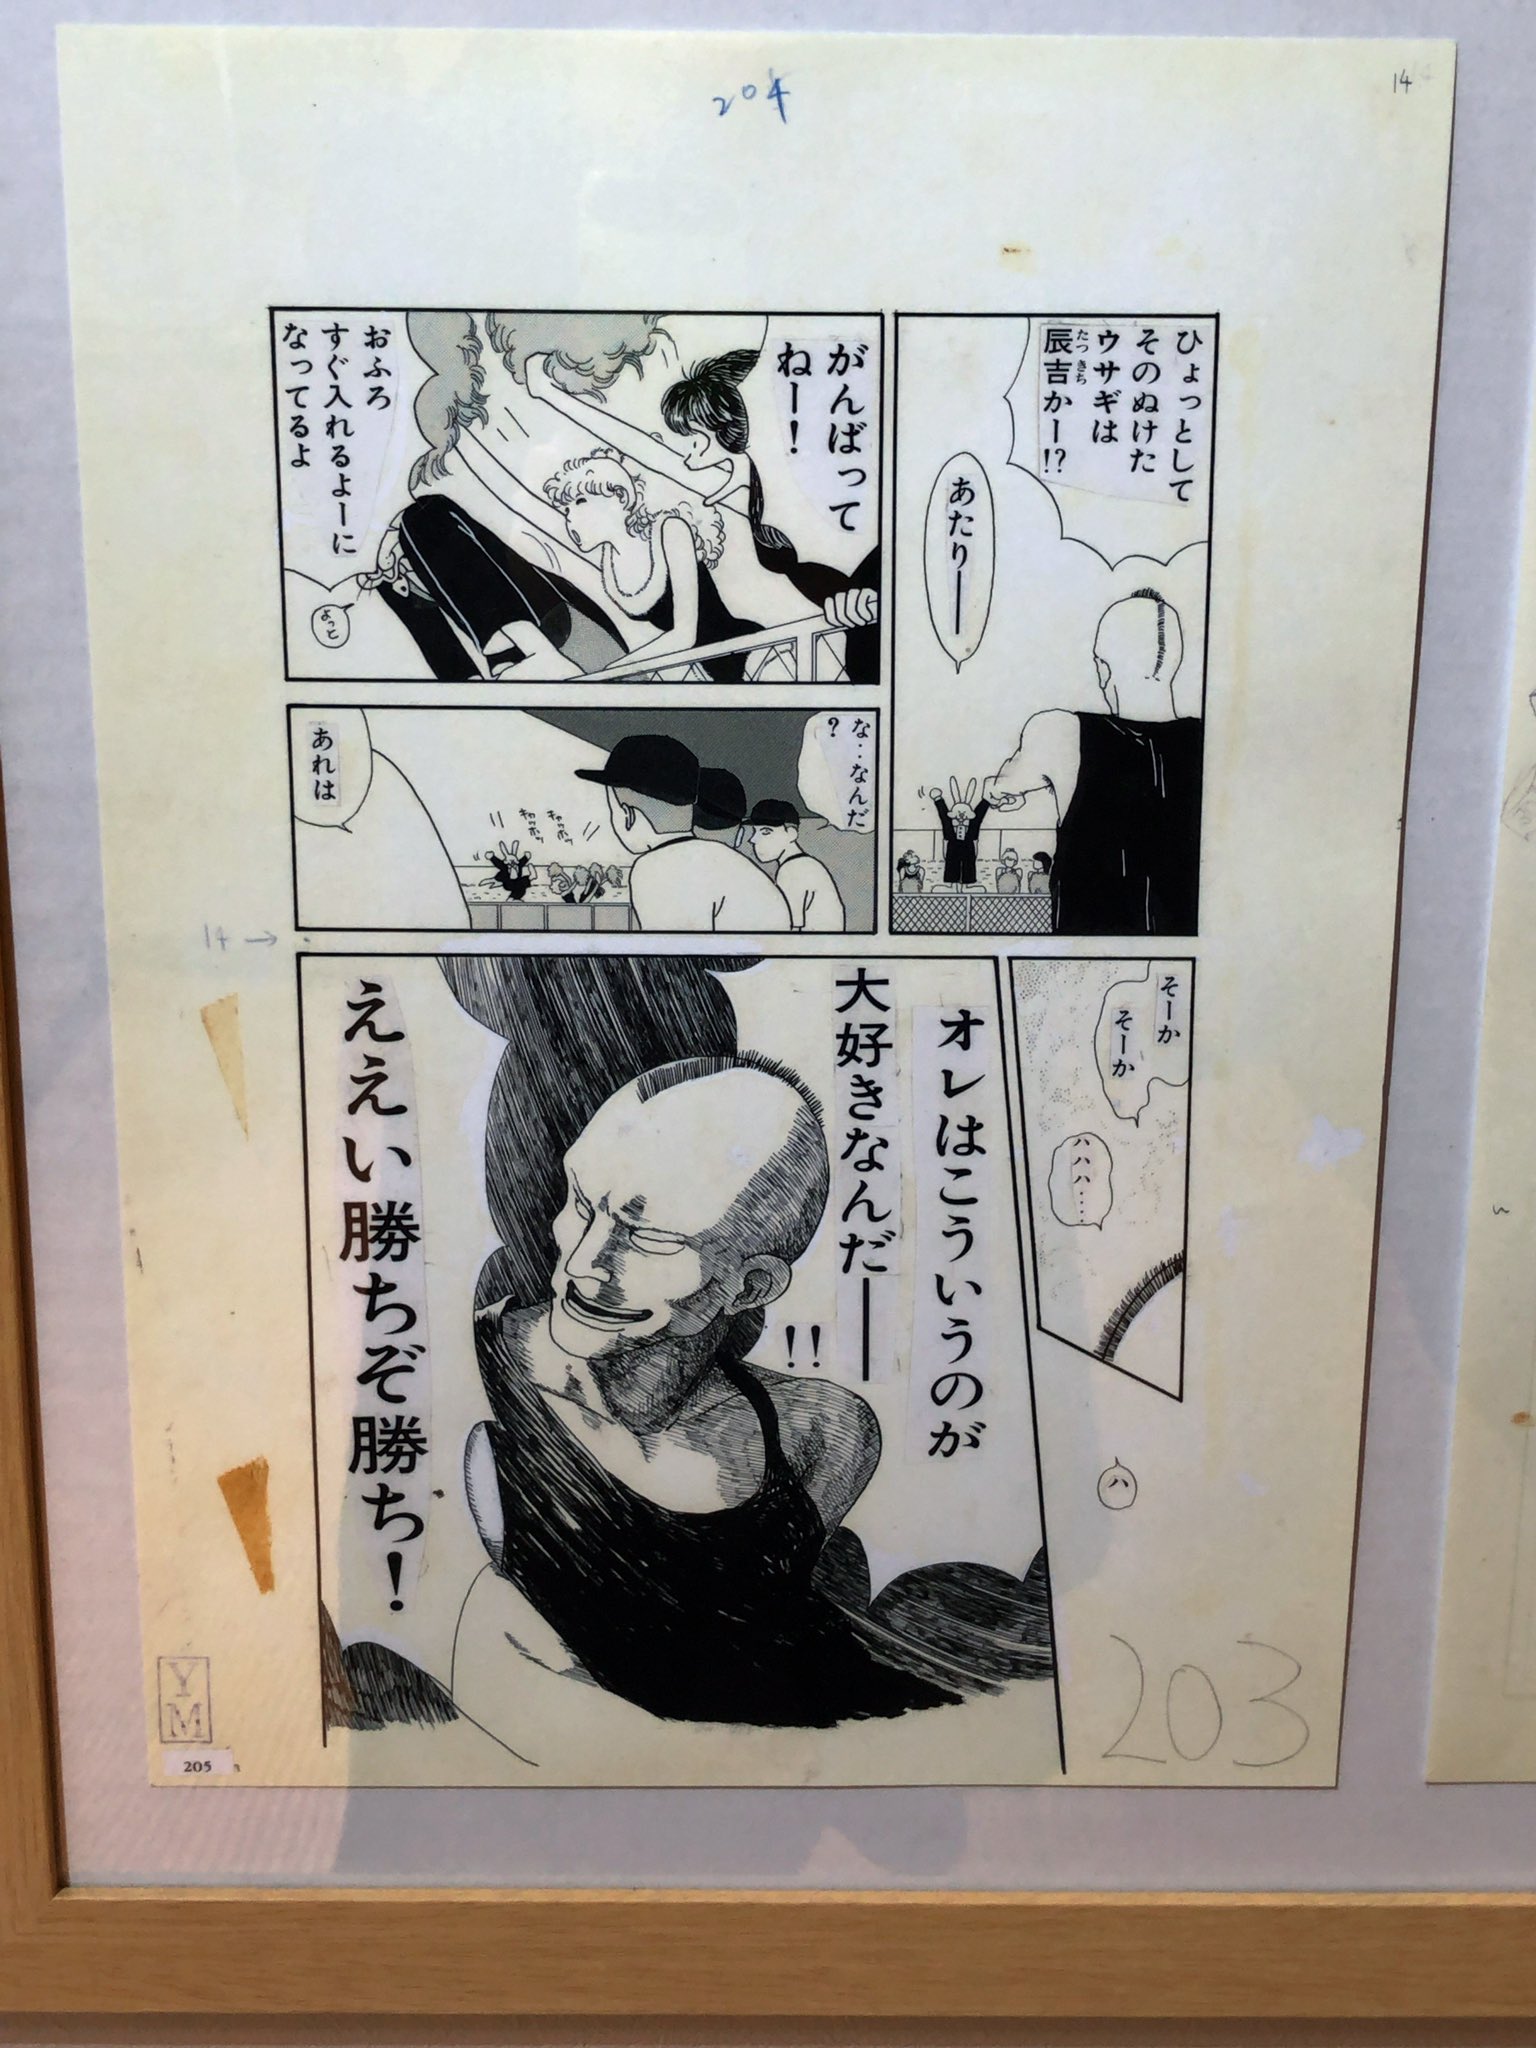 204
14
ひょっとして
そのぬけた
ウサギは
辰吉かー!?
たつきち
あたり——
がんばって
ねー!
おふろ
すぐ入れるよーに
なってるよ
よっと
な‥なんだ
?
キャッホッ
キャッホッ
あれは
14→
そーか
そーか
ハハハ‥‥
ハ
オレはこういうのが
大好きなんだ——
!!
ええい勝ちぞ勝ち!
203
YM
205